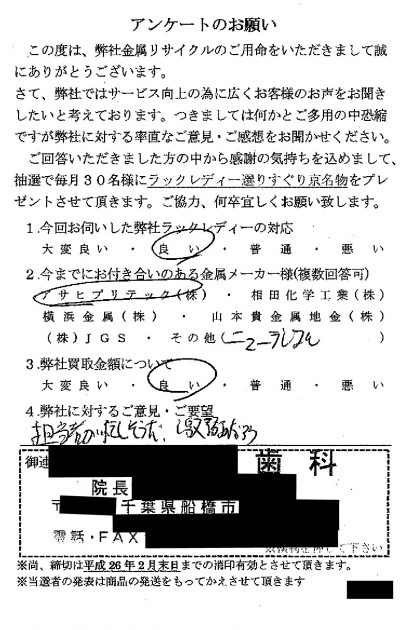 アンケートのお願い
この度は、弊社金属リサイクルのご用命をいただきまして誠
にありがとうございます。
さて、弊社ではサービス向上の為に広くお客様のお声をお聞き
したいと考えております。つきましては何かとご多用の中恐縮
ですが弊社に対する率直なご意見・ご感想をお聞かせください。
ご回答いただきました方の中から感謝の気持ちを込めまして、
抽選で毎月30名様にラックレディー選りすぐり京名物をプレ
ゼントさせて頂きます。ご協力、何卒宜しくお願い致します。
1.今回お伺いした弊社ラックレディーの対応
大変良い・良い・普通・悪い
2.今までにお付き合いのある金属メーカー様(複数回答可)
アサヒプリテック(株)・相田化学工業(株)
横浜金属(株)・山本貴金属地金(株)
(株)JGS・その他( )
3.弊社買取金額について
大変良い・良い・普通・悪い
4.弊社に対するご意見・ご要望
担当者が忙しそうだ。
歯科
院長
〒 千葉県船橋市
電話・FAX
※尚、締切は平成26年2月末日までの消印有効とさせて頂きます。
※当選者の発表は商品の発送をもってかえさせて頂きます